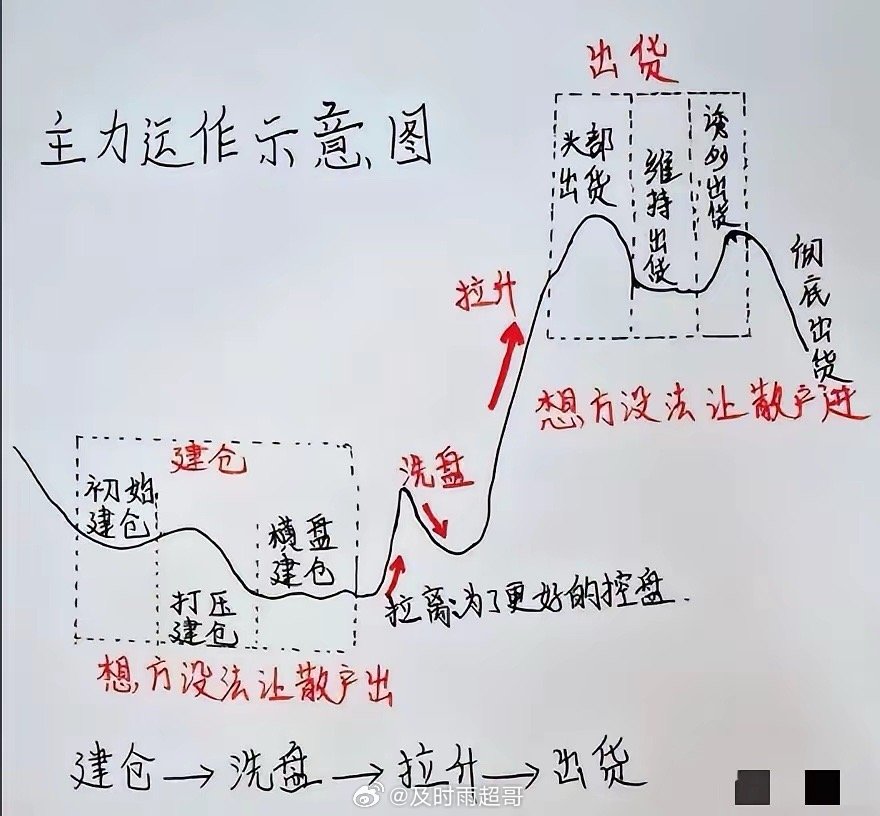 主力运作示意图
出货
头部
出货
维持出货
诱多出货
彻底出货
拉升
想方设法让散户进
建仓
初始
建仓
打压
建仓
横盘
建仓
洗盘
拉离:为了更好的控盘.
想方设法让散户出
建仓→洗盘→拉升→出货
@及时雨超哥